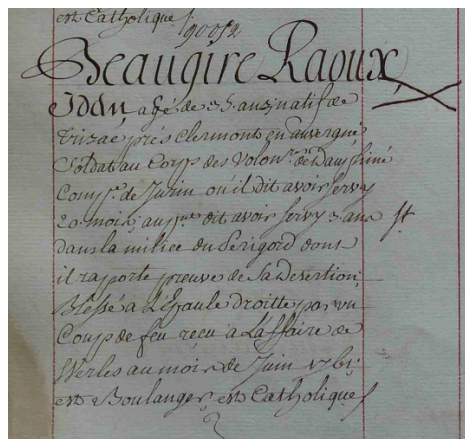 est Catholique /.
90052
Beaugire Raoux,
Jean agé de 35. ans natif de
Trizac près clermont en auvergne
Soldat au Corps des Volon.res de Dauphiné
Comp.e de Turin où il dit avoir servy
20. mois, aup.nt dit avoir servy 3. ans
dans la milice du Perigord dont
il raporte preuve de sa Desertion
Blessé a L'Epaule droitte par un
Coup de feu recu a L'affaire de
Werles au mois de Juin 1761.
est Boulanger est Catholique /